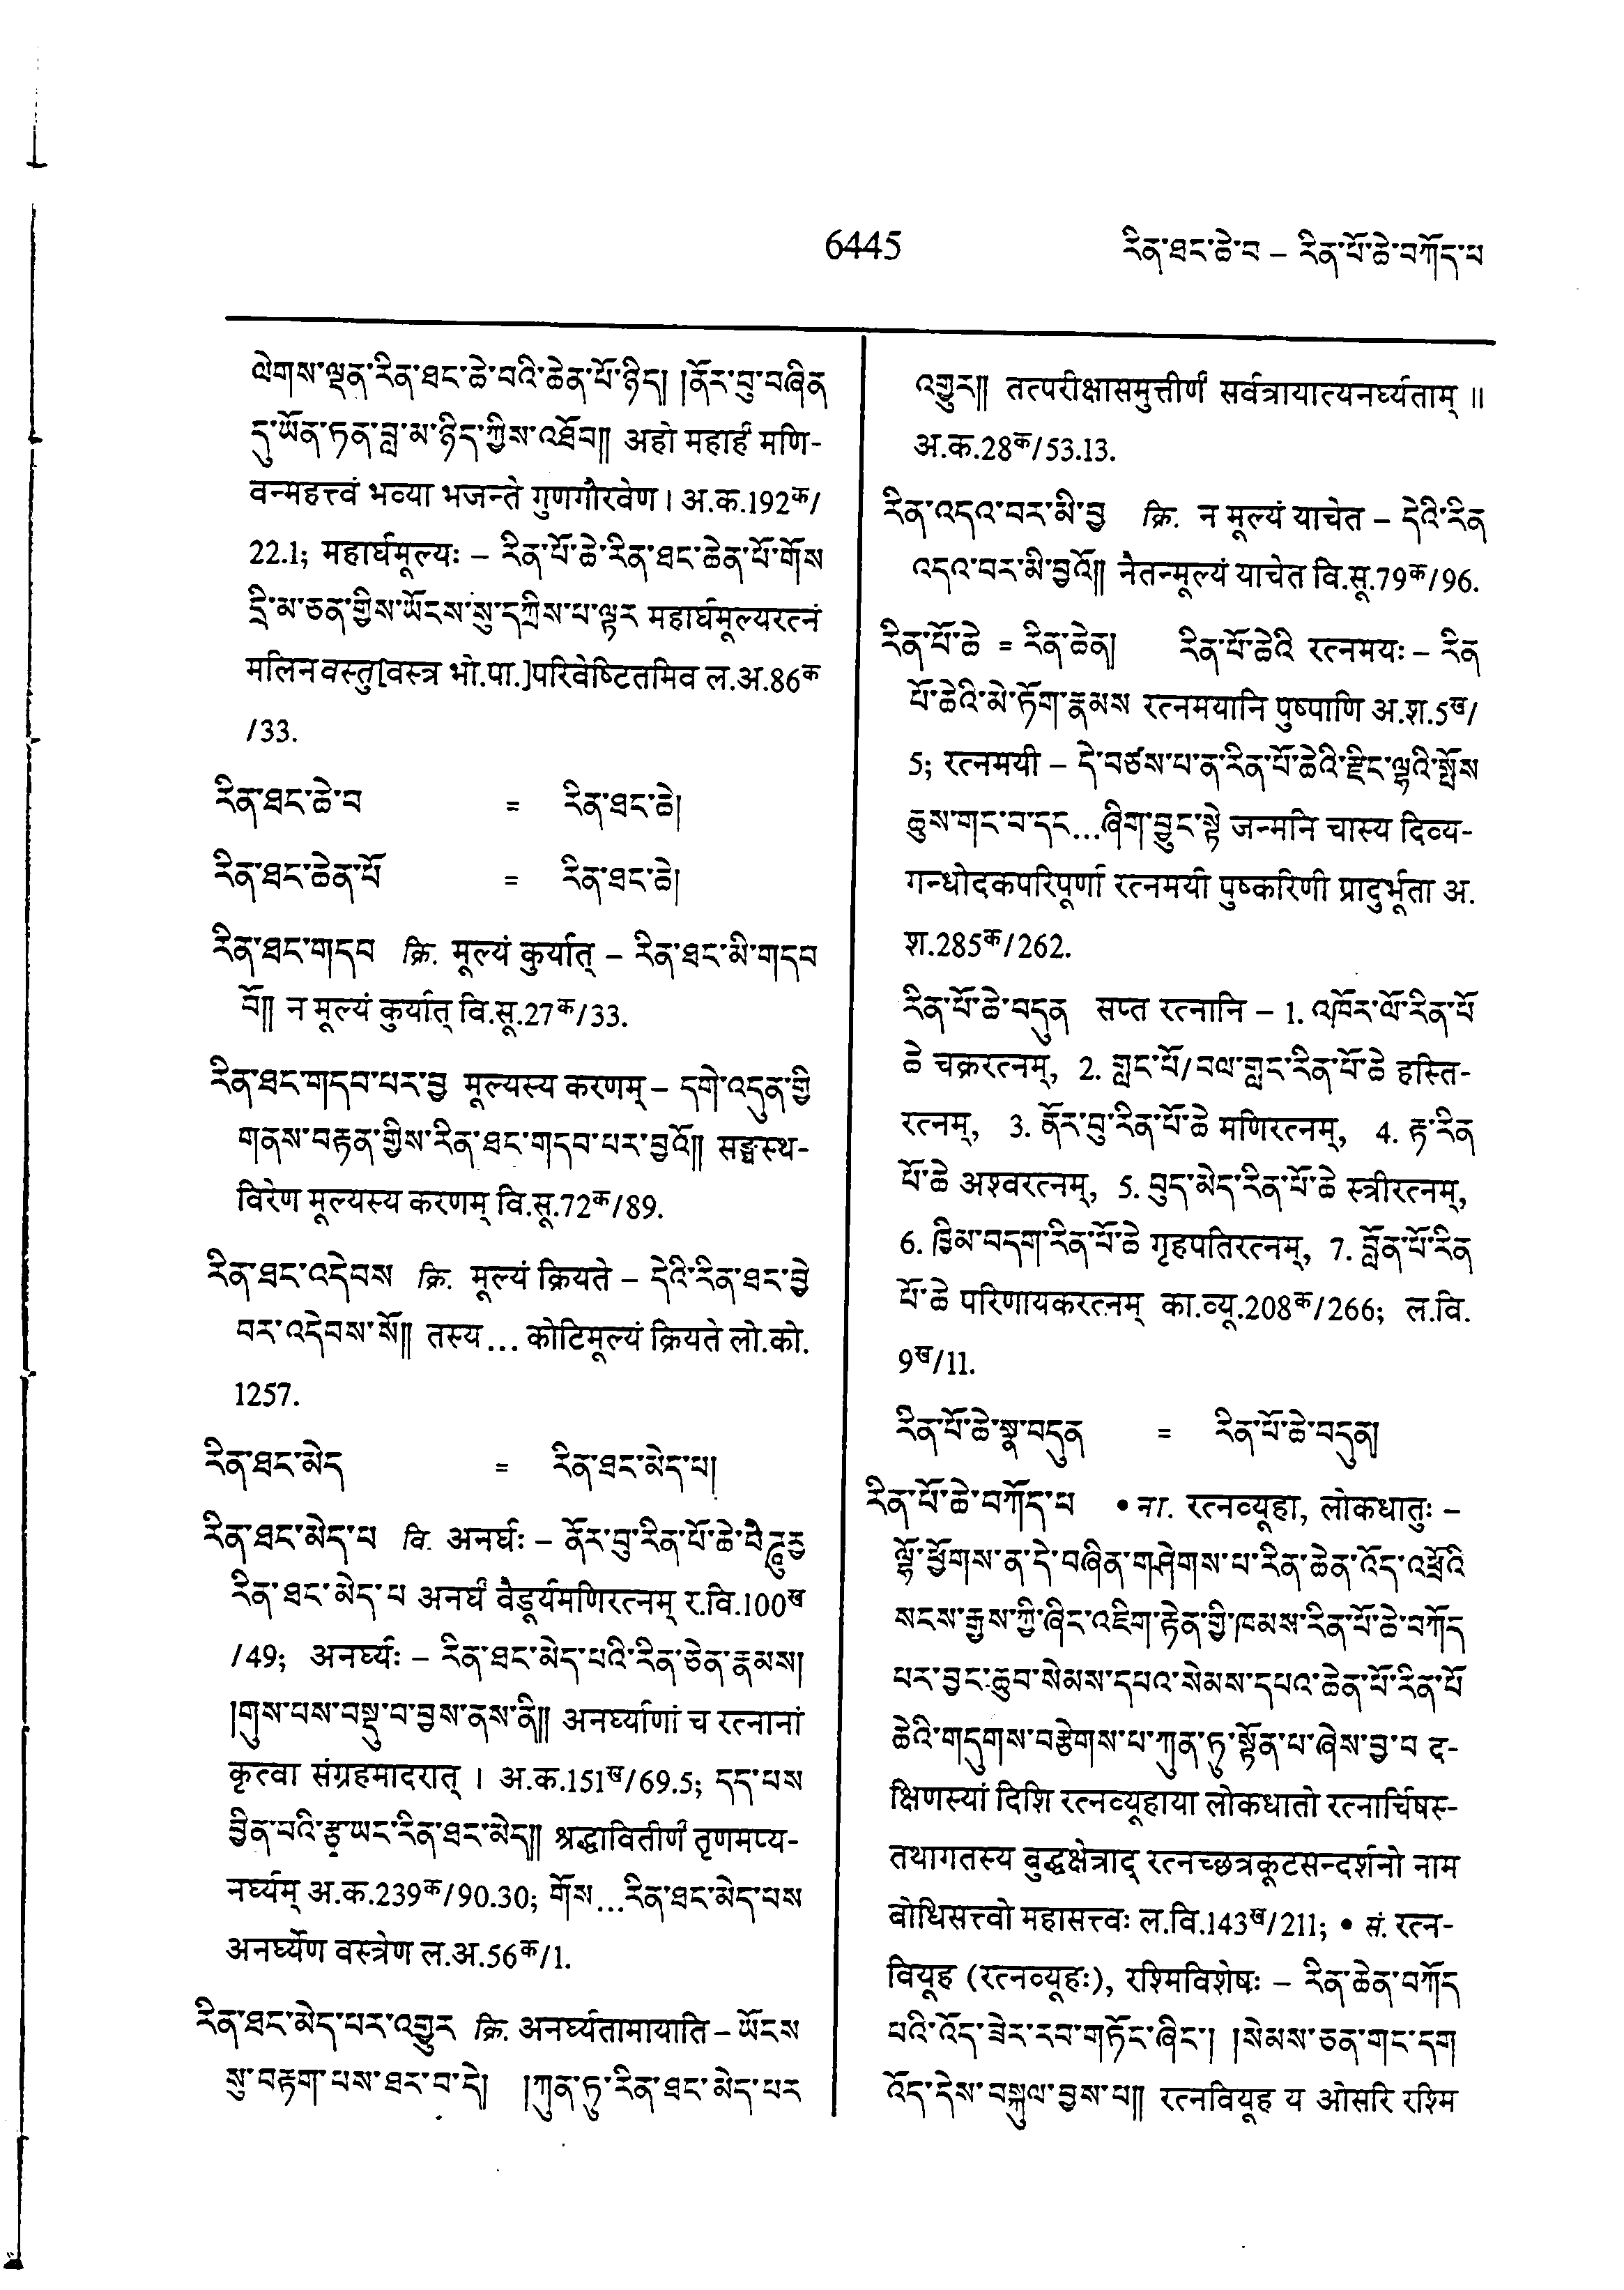 6445
རིན་ཐང་ཆེ་བ – རིན་པོ་ཆེ་བཀོད་པ
ལེགས་ལྡན་རིན་ཐང་ཆེ་བའི་ཆེན་པོ་ཉིད། །ནོར་བུ་བཞིན
དུ་ཡོན་ཏན་བླ་མ་ཉིད་ཀྱིས་འཐོབ།། अहो महार्हं मणि-
वन्महत्त्वं भव्या भजन्ते गुणगौरवेण । अ.क.192क/
22.1; महार्घमूल्यः – རིན་པོ་ཆེ་རིན་ཐང་ཆེན་པོ་གོས
དྲི་མ་ཅན་གྱིས་ཡོངས་སུ་དཀྲིས་པ་ལྟར महार्घमूल्यरत्नं
मलिनवस्तु[वस्त्र भो.पा.]परिवेष्टितमिव ल.अ.86क
/33.
རིན་ཐང་ཆེ་བ = རིན་ཐང་ཆེ།
རིན་ཐང་ཆེན་པོ = རིན་ཐང་ཆེ།
རིན་ཐང་གདབ क्रि. मूल्यं कुर्यात् – རིན་ཐང་མི་གདབ
བོ།། न मूल्यं कुर्यात् वि.सू.27क/33.
རིན་ཐང་གདབ་པར་བྱ मूल्यस्य करणम् – དགེ་འདུན་གྱི
གནས་བརྟན་གྱིས་རིན་ཐང་གདབ་པར་བྱའོ།། सङ्घस्थ-
विरेण मूल्यस्य करणम् वि.सू.72क/89.
རིན་ཐང་འདེབས क्रि. मूल्यं क्रियते – དེའི་རིན་ཐང་བྱེ
བར་འདེབས་སོ།། तस्य... कोटिमूल्यं क्रियते लो.को.
1257.
རིན་ཐང་མེད = རིན་ཐང་མེད་པ།
རིན་ཐང་མེད་པ वि. अनर्घः – ནོར་བུ་རིན་པོ་ཆེ་བཻཌཱུརྱ
རིན་ཐང་མེད་པ अनर्घं वैडूर्यमणिरत्नम् र.वि.100ख
/49; अनर्घ्यः – རིན་ཐང་མེད་པའི་རིན་ཅེན་རྣམས།
།གུས་པས་བསྡུ་བ་བྱས་ནས་ནི།། अनर्घ्याणां च रत्नानां
कृत्वा संग्रहमादरात् । अ.क.151ख/69.5; དད་པས
བྱིན་པའི་རྩྭ་ཡང་རིན་ཐང་མེད།། श्रद्धावितीर्णं तृणमप्य-
नर्घ्यम् अ.क.239क/90.30; གོས...རིན་ཐང་མེད་པས
अनर्घ्येण वस्त्रेण ल.अ.56क/1.
རིན་ཐང་མེད་པར་འགྱུར क्रि. अनर्घ्यतामायाति – ཡོངས
སུ་བརྟག་པས་ཐར་བ་དེ། །ཀུན་ཏུ་རིན་ཐང་མེད་པར
འགྱུར།། तत्परीक्षासमुत्तीर्णं सर्वत्रायात्यनर्घ्यताम् ॥
अ.क.28क/53.13.
རིན་འདའ་བར་མི་བྱ क्रि. न मूल्यं याचेत – དེའི་རིན
འདའ་བར་མི་བྱའོ།། नैतन्मूल्यं याचेत वि.सू.79क/96.
རིན་པོ་ཆེ = རིན་ཆེན། རིན་པོ་ཆེའི रत्नमयः – རིན
པོ་ཆེའི་མེ་ཏོག་རྣམས रत्नमयानि पुष्पाणि अ.श.5ख/
5; रत्नमयी – དེ་བཙས་པ་ན་རིན་པོ་ཆེའི་རྫིང་ལྷའི་སྤོས
ཆུས་གང་བ་དང...ཞིག་བྱུང་སྟེ जन्मनि चास्य दिव्य-
गन्धोदकपरिपूर्णा रत्नमयी पुष्करिणी प्रादुर्भूता अ.
श.285क/262.
རིན་པོ་ཆེ་བདུན सप्त रत्नानि – 1. འཁོར་ལོ་རིན་པོ
ཆེ चक्ररत्नम्, 2. གླང་པོ/བལ་གླང་རིན་པོ་ཆེ हस्ति-
रत्नम्, 3. ནོར་བུ་རིན་པོ་ཆེ मणिरत्नम्, 4. རྟ་རིན
པོ་ཆེ अश्वरत्नम्, 5. བུད་མེད་རིན་པོ་ཆེ स्त्रीरत्नम्,
6. ཁྱིམ་བདག་རིན་པོ་ཆེ गृहपतिरत्नम्, 7. བློན་པོ་རིན
པོ་ཆེ परिणायकरत्नम् का.व्यू.208क/266; ल.वि.
9ख/11.
རིན་པོ་ཆེ་སྣ་བདུན = རིན་པོ་ཆེ་བདུན།
རིན་པོ་ཆེ་བཀོད་པ • ना. रत्नव्यूहा, लोकधातुः –
ལྷོ་ཕྱོགས་ན་དེ་བཞིན་གཤེགས་པ་རིན་ཆེན་འོད་འཕྲོའི
སངས་རྒྱས་ཀྱི་ཞིང་འཇིག་རྟེན་གྱི་ཁམས་རིན་པོ་ཆེ་བཀོད
པར་བྱང་ཆུབ་སེམས་དཔའ་སེམས་དཔའ་ཆེན་པོ་རིན་པོ
ཆེའི་གདུགས་བརྩེགས་པ་ཀུན་ཏུ་སྟོན་པ་ཞེས་བྱ་བ द-
क्षिणस्यां दिशि रत्नव्यूहाया लोकधातो रत्नार्चिषस्-
तथागतस्य बुद्धक्षेत्राद् रत्नच्छत्रकूटसन्दर्शनो नाम
बोधिसत्त्वो महासत्त्वः ल.वि.143ख/211; • सं. रत्न-
वियूह (रत्नव्यूहः), रश्मिविशेषः – རིན་ཆེན་བཀོད
པའི་འོད་ཟེར་རབ་གཏོང་ཞིང་། །སེམས་ཅན་གང་དག
འོད་དེས་བསྐུལ་བྱས་པ།། रत्नवियूह य ओसरि रश्मि